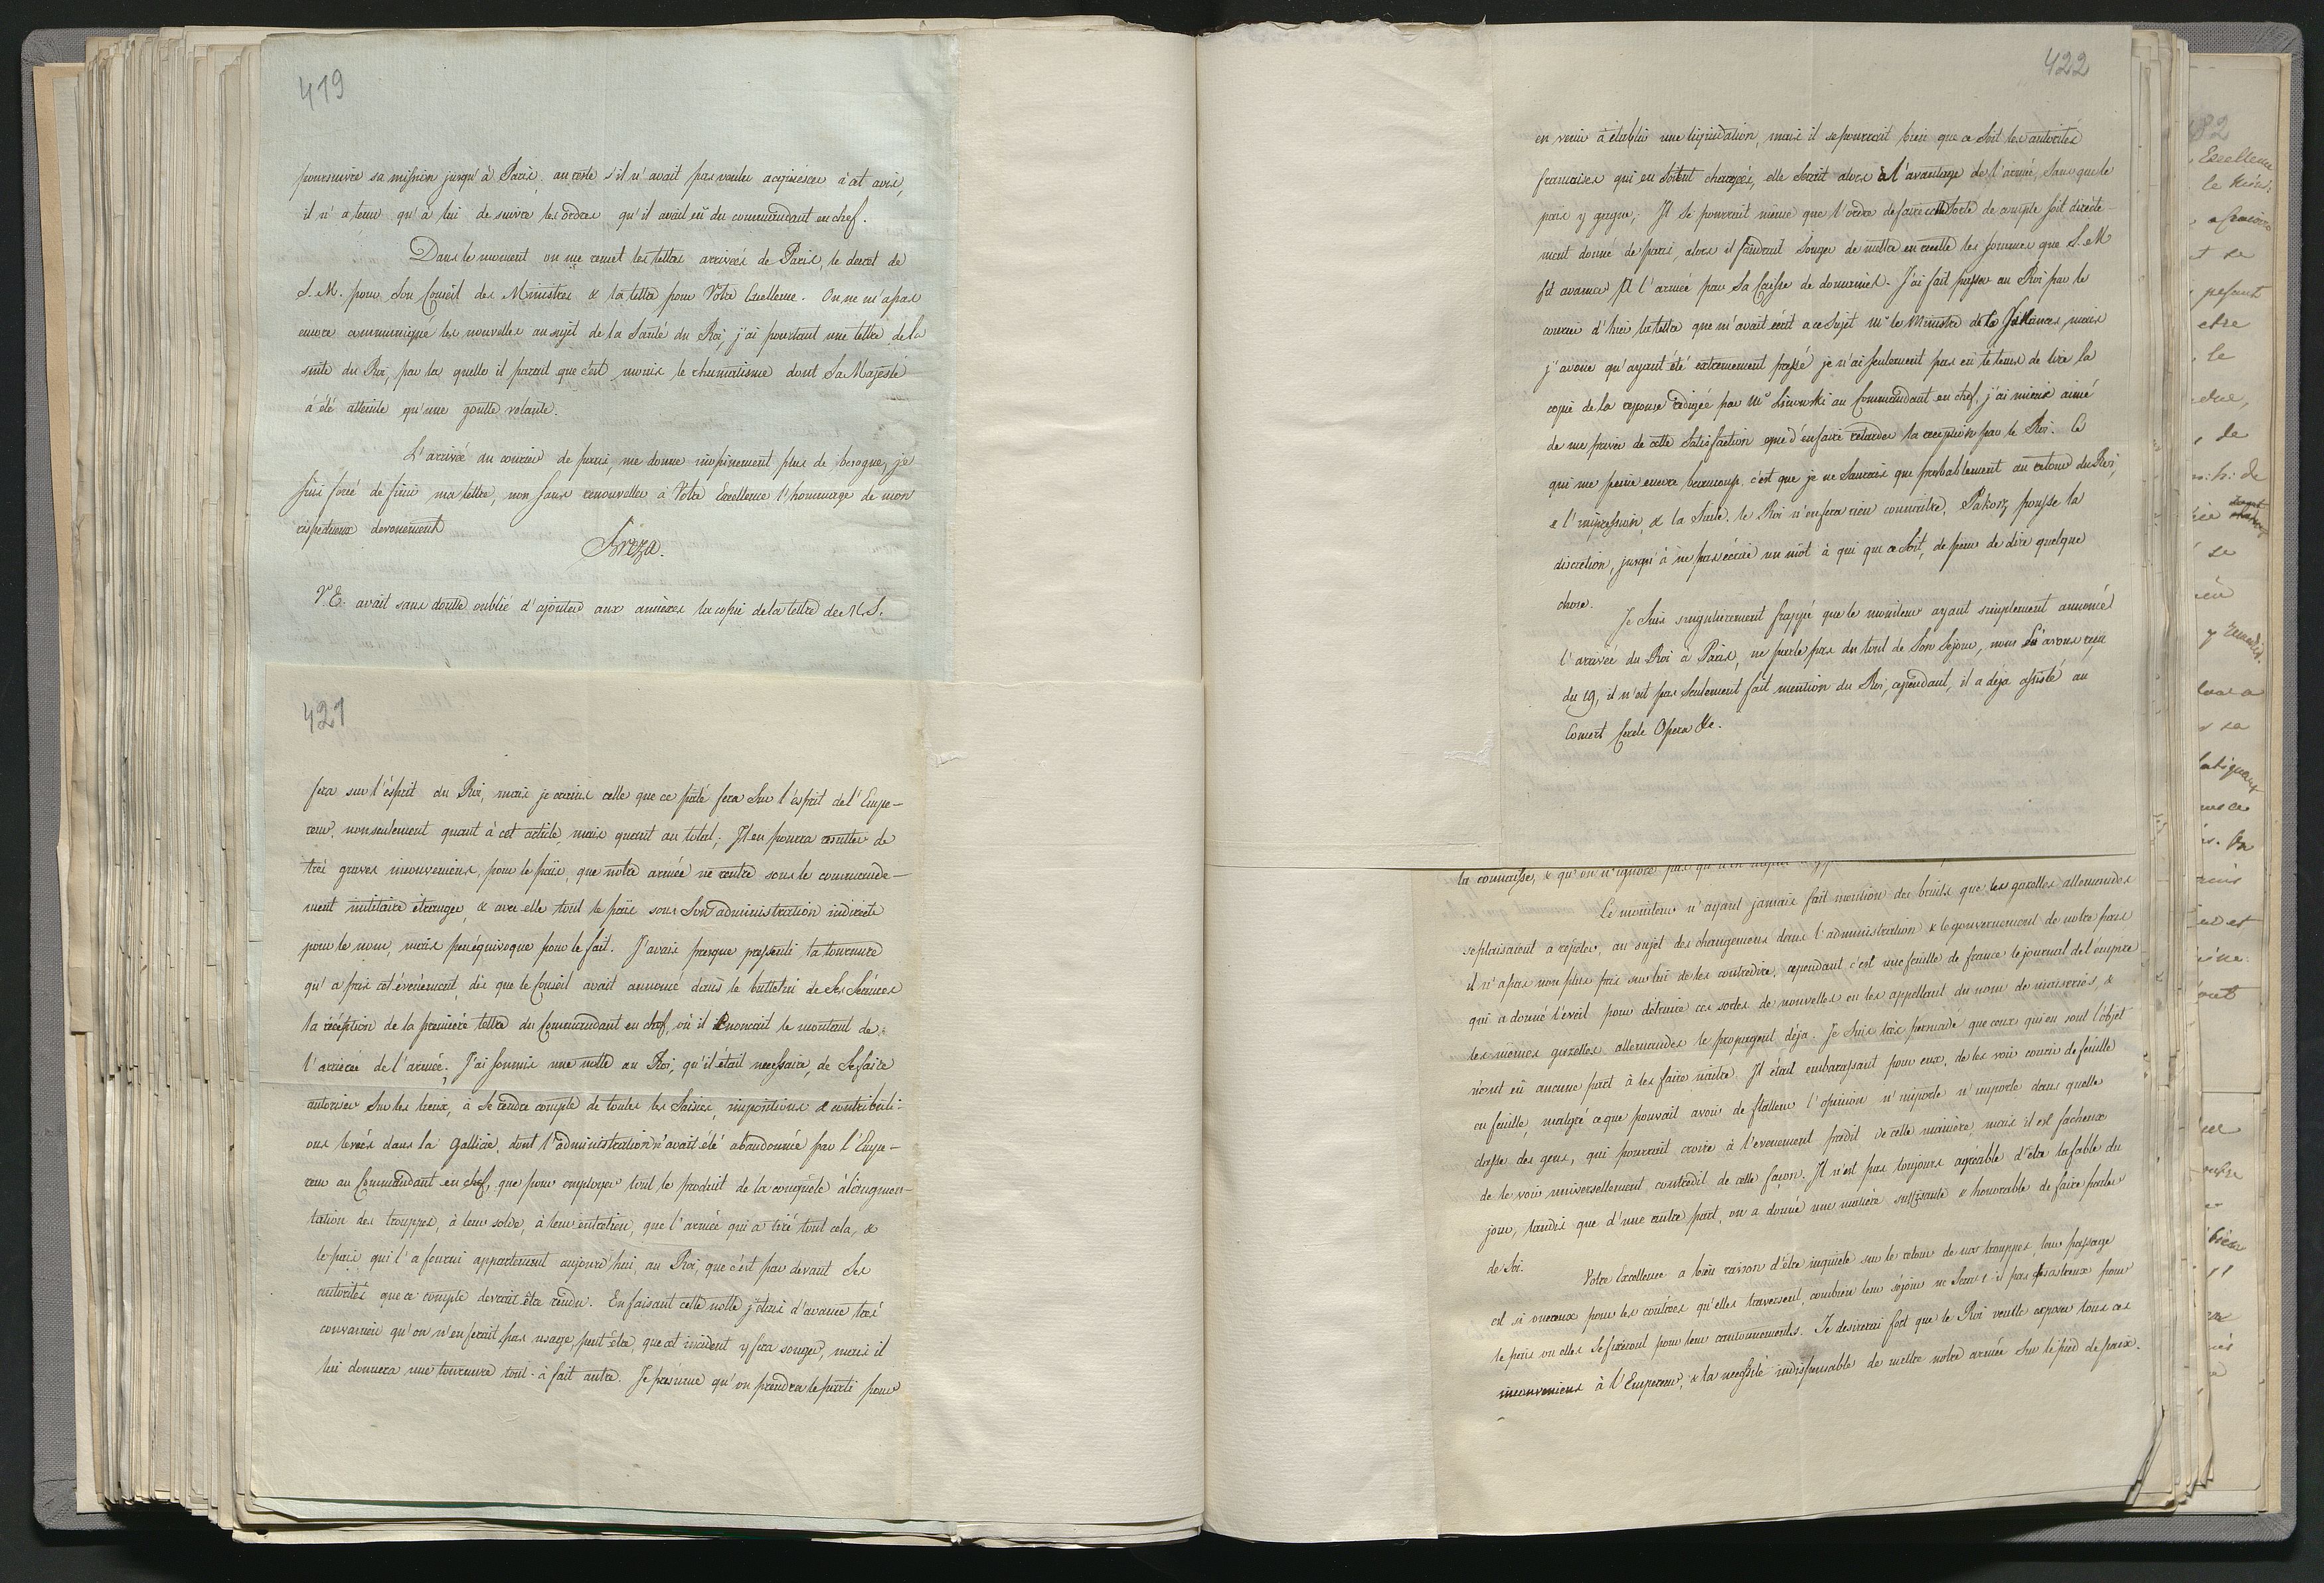 419
poursuivre sa mission jusqu'à Paris, au reste s'il n'avait pas voulu acquiescer à cet avis,
il n'a tenu qu'à lui de suivre les ordres qu'il avait eü du commandant en chef.
Dans le moment on me remet les lettres arrivées de Paris, le decret de
S. M. pour son Conseil des Ministres & la lettre pour Votre Excellence. On ne m'a pas
encore communiqué les nouvelles au sujet de la Santé du Roi, j'ai pourtant une lettre de la
suite du Roi, par la quelle il parait que c'est moins le rhumatisme dont Sa Majesté
à été atteinte qu'une goutte volante.
L'arrivée du courier de paris, me donne inopinement plus de besogne, je
suis forcé de finir ma lettre, non sans renouveller à Votre Excellence l'hommage de mon
respectueux devouement
Breza.
V. E. avait sans doutte oublié d'ajouter aux annèxes la copie de la lettre de
421
fera sur l'ésprit du Roi, mais je crains celle que ce pâté fera sur l'ésprit de l'Empe-
reur, non seulement quant à cet article, mais quant au total; Il en pourra resulter de
très graves inconveniens, pour le païs, que notre armée ne rentre sous le commande-
ment militaire étranger, & avec elle tout le païs sous son administration indirecte
pour le nom, mais peu équivoque pour le fait. J'avais presque pressenti la tournure
qu'a pris cet évenèment, dès que le Conseil avait annoncé dans le bulletin de ses Séances
la réception de la première lettre du Commandant en chef, où il énoncait le montant de
l'arrièrée de l'armée. J'ai soumis une notte au Roi, qu'il était necessaire, de se faire
autoriser sur les lieux, à se rendre compte de toutes les saisies, impositions & contributi-
ons levées dans la Gallicie, dont l'administration n'avait été abandonnée par l'Empe-
reur au Commandant en chef, que pour employer tout le produit de la conquête à l'augmen-
tation des trouppes, à leur solde, à leur entretien, que l'armée qui a tiré tout cela, &
le païs qui l'a fourni appartenant aujourd'hui au Roi, que c'est par devant ses
autorités que ce compte devrait être rendu. En faisant cette notte j'étais d'avance très
convaincu qu'on n'en ferait pas usage, peut être, que cet incident y fera songer, mais il
lui donnera une tournure tout-à fait autre. Je présume qu'on prendra le parti pour
422
en venir à établir une liquidation, mais il se pourrait bien que ce soit les autorités
francaises qui en soient chargées, elle serait alors à l'avantage de l'armée, sans que le
païs y gagne; Il se pourrait même que l'ordre de faire cette sorte de compte soit directe-
ment donné de paris, alors il faudrait songer de mettre en recette les sommes que S. M
fit avancer à l'armée par sa Caisse de domaines. J'ai fait passer au Roi par le
courier d'hier la lettre que m'avait écrit a ce sujet Mr le Ministre de la finances, mais
j'avoue qu'ayant été extremement pressé je n'ai seulement pas eü le tems de lire la
copie de la reponse redigée par Mr Linowski au Commandant en chef, j'ai mieux aimé
de me priver de cette satisfaction que d'en faire retarder la reception par le Roi. Ce
qui me peine encore beaucoup, c'est que je ne saurais que probablement au retour du Roi,
& l'impression, & la suite. le Roi n'en fera rien connaitre, Pakosz pousse la
discretion, jusqu'à ne pas écrire un mot à qui que ce soit, de peur de dire quelque
chose.
Je suis singulierement frappé que le moniteur ayant simplement annoncé
l'arrivée du Roi à Paris, ne parle pas du tout de son séjour, nous l'avons reçu
du 19, il n'est pas seulement fait mention du Roi, cependant, il a déjà assisté au
Concert Cercle Opera &c.
la connaisse, & qu'on n'ignore pas
Le moniteur n'ayant jamais fait mention des bruits que les gazettes allemandes
se plaisaient a repeter, au sujet des changemens dans l'administration & le gouvernement de notre païs
il n'a pas non plus pris sur lui de les contredire, cependant c'est une feuille de france le journal de l'empire
qui a donné l'eveil pour detruire ces sortes de nouvelles en les appellant du nom de niaiseries, &
les mêmes gazettes allemandes le propagent déja. Je suis très persuadé que ceux qui en sont l'objet
n'ont eü aucune part à les faire naitre. Il était embarassant pour eux, de les voir courir de feuille
en feuille, malgré ce que pouvait avoir de flatteur l'opinion n'importe n'importe dans quelle
classe des gens, qui pourrait croire à l'evenement predit de cette manière, mais il est facheux
de le voir universellement contredit de cette façon. Il n'est pas toujours agréable d'être la fable du
jour, tandis que d'une autre part, on a donné une matière suffisante & honorable de faire parler
de soi.
Votre Excellence a bien raison d'être inquiete sur le retour de nos trouppes, leur passage
est si onereux pour les contrées qu'elles traversent, combien leur séjour ne sera t-il pas desastreux pour
le païs ou elles se fixeront pour leur cantonnements. Je desirerai fort que le Roi veuille exposer tous ces
inconveniens à l'Empereur, & la necessité indispensable de mettre notre armée sur le pied de paix.
Excellence